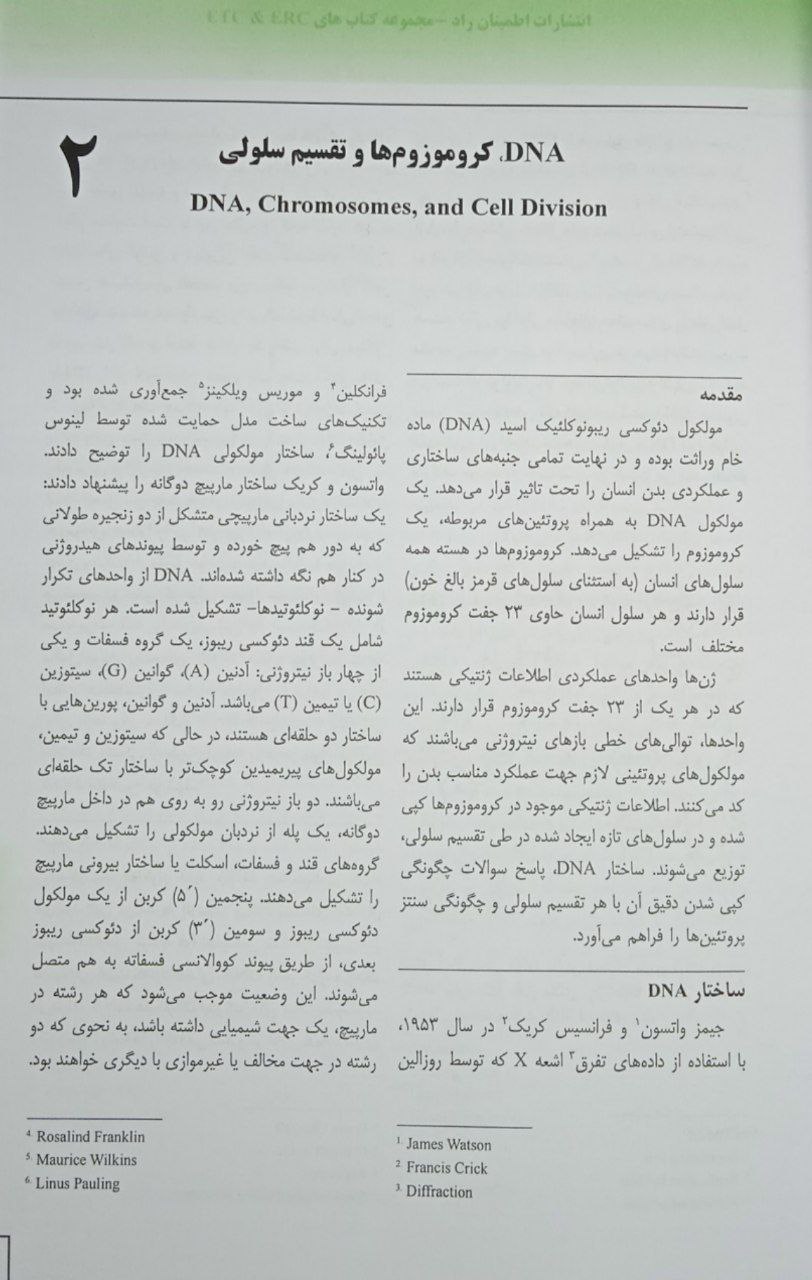 انتشارات اطمینان راد – مجموعه کتاب های ETC & ERC
۲
DNA، کروموزوم‌ها و تقسیم سلولی
DNA, Chromosomes, and Cell Division
مقدمه
مولکول دئوکسی ریبونوکلئیک اسید (DNA) ماده
خام وراثت بوده و در نهایت تمامی جنبه‌های ساختاری
و عملکردی بدن انسان را تحت تاثیر قرار می‌دهد. یک
مولکول DNA به همراه پروتئین‌های مربوطه، یک
کروموزوم را تشکیل می‌دهد. کروموزوم‌ها در هسته همه
سلول‌های انسان (به استثنای سلول‌های قرمز بالغ خون)
قرار دارند و هر سلول انسان حاوی ۲۳ جفت کروموزوم
مختلف است.
ژن‌ها واحدهای عملکردی اطلاعات ژنتیکی هستند
که در هر یک از ۲۳ جفت کروموزوم قرار دارند. این
واحدها، توالی‌های خطی بازهای نیتروژنی می‌باشند که
مولکول‌های پروتئینی لازم جهت عملکرد مناسب بدن را
کد می‌کنند. اطلاعات ژنتیکی موجود در کروموزوم‌ها کپی
شده و در سلول‌های تازه ایجاد شده در طی تقسیم سلولی،
توزیع می‌شوند. ساختار DNA، پاسخ سوالات چگونگی
کپی شدن دقیق آن با هر تقسیم سلولی و چگونگی سنتز
پروتئین‌ها را فراهم می‌آورد.
ساختار DNA
جیمز واتسون¹ و فرانسیس کریک² در سال ۱۹۵۳،
با استفاده از داده‌های تفرق³ اشعه X که توسط روزالین
¹. James Watson
². Francis Crick
³. Diffraction
فرانکلین⁴ و موریس ویلکینز⁵ جمع‌آوری شده بود و
تکنیک‌های ساخت مدل حمایت شده توسط لینوس
پائولینگ⁶، ساختار مولکولی DNA را توضیح دادند.
واتسون و کریک ساختار مارپیچ دوگانه را پیشنهاد دادند:
یک ساختار نردبانی مارپیچی متشکل از دو زنجیره طولانی
که به دور هم پیچ خورده و توسط پیوندهای هیدروژنی
در کنار هم نگه داشته شده‌اند. DNA از واحدهای تکرار
شونده – نوکلئوتیدها– تشکیل شده است. هر نوکلئوتید
شامل یک قند دئوکسی ریبوز، یک گروه فسفات و یکی
از چهار باز نیتروژنی: آدنین (A)، گوانین (G)، سیتوزین
(C) یا تیمین (T) می‌باشد. آدنین و گوانین، پورین‌هایی با
ساختار دو حلقه‌ای هستند، در حالی که سیتوزین و تیمین،
مولکول‌های پیریمیدین کوچک‌تر با ساختار تک حلقه‌ای
می‌باشند. دو باز نیتروژنی رو به روی هم در داخل مارپیچ
دوگانه، یک پله از نردبان مولکولی را تشکیل می‌دهند.
گروه‌های قند و فسفات، اسکلت یا ساختار بیرونی مارپیچ
را تشکیل می‌دهند. پنجمین (۵´) کربن از یک مولکول
دئوکسی ریبوز و سومین (۳´) کربن از دئوکسی ریبوز
بعدی، از طریق پیوند کووالانسی فسفاته به هم متصل
می‌شوند. این وضعیت موجب می‌شود که هر رشته در
مارپیچ، یک جهت شیمیایی داشته باشد، به نحوی که دو
رشته در جهت مخالف یا غیرموازی با دیگری خواهند بود.
⁴. Rosalind Franklin
⁵. Maurice Wilkins
⁶. Linus Pauling